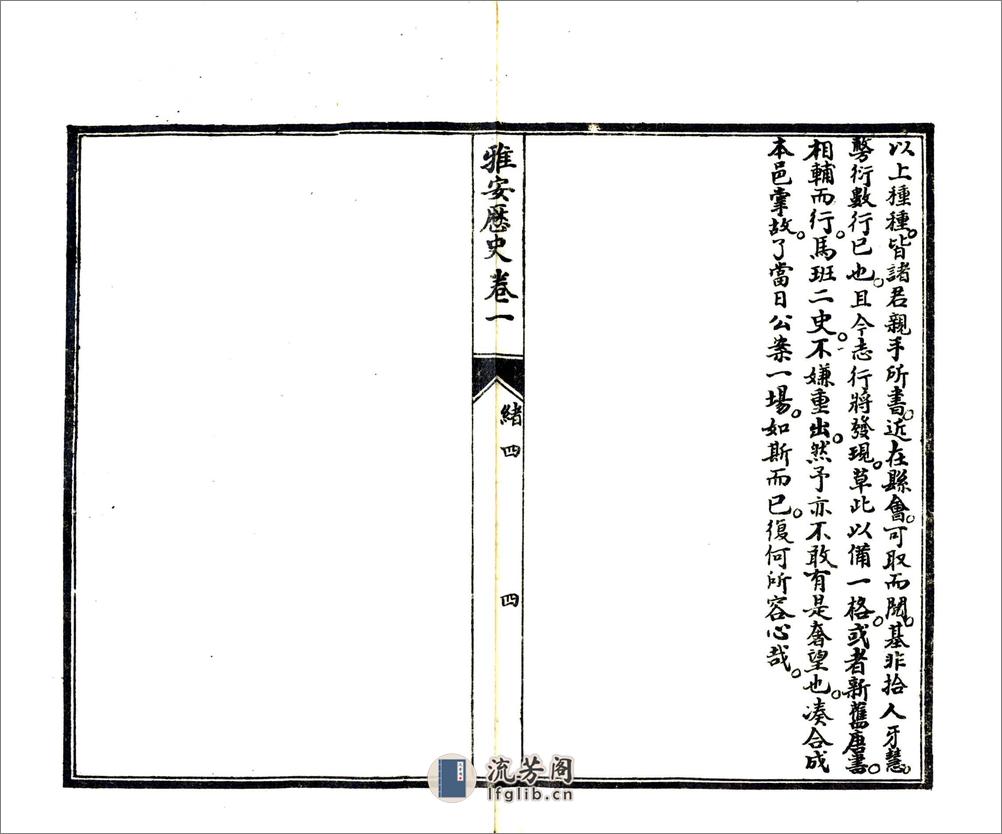 以上種種。皆諸君親手所書。近在縣會。可取而閱。基非拾人牙慧。
謷衍數行已也。且今志行將發現。草此以備一格。或者新舊唐書。
相輔而行。馬班二史。不嫌重出。然予亦不敢有是奢望也。湊合成
本邑掌故。了當日公案一場。如斯而已。復何所容心哉。
雅安歷史 卷二
緒四
四
流芳阁
lfglib.cn